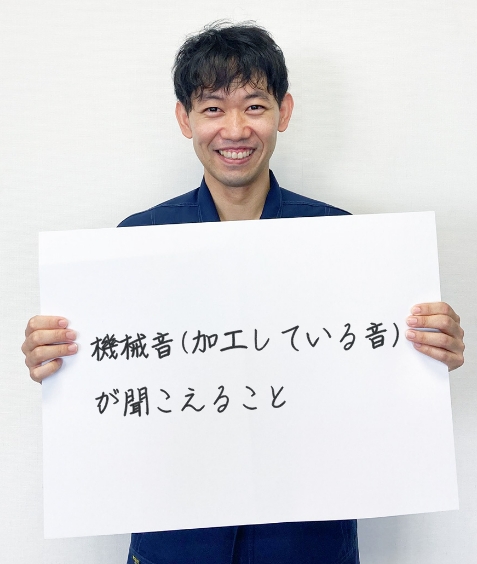 機械音(加工している音)
が聞こえること